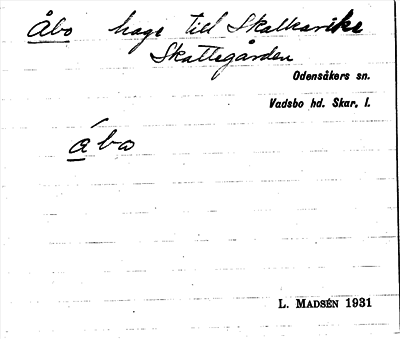 Åbo hage till Skalkarike
Skattegården
Odensåkers sn.
Vadsbo hd. Skar. l.
ába
L. MADSÉN 1931